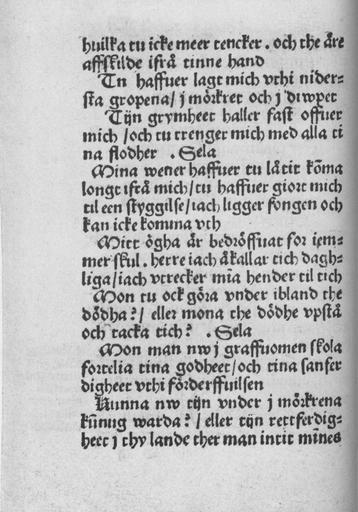 huilka tu icke meer tencker. och the äre
affskilde ifrå tinne hand
Tu haffuer lagt mich vthi nider-
sta gropena/ j mörkret och j diwpet
Tijn grymheet haller fast offuer
mich/och tu trenger mich med alla ti
na flodher. Sela
Mina wener haffuer tu låtit kōma
longt ifrå mich/tu haffuer giort mich
til een styggilse/iach ligger fongen och
kan icke komma vth
Mitt ögha är bedröffuat for iem-
mer skul. herre iach åkallar tich dagh-
liga/iach vtrecker mīa hender til tich
Mon tu ock göra vnder ibland the
dödha?/ eller mona the dödhe vpstå
och tacka tich? . Sela
Mon man nw j graffuomen skola
fortelia tina godheet/och tina sanfer
digheet vthi förderffuilsen
Kunna nw tijn vnder j mörkrena
kūnug warda?/ eller tijn rettferdig-
heet j thy lande ther man intit mīnes